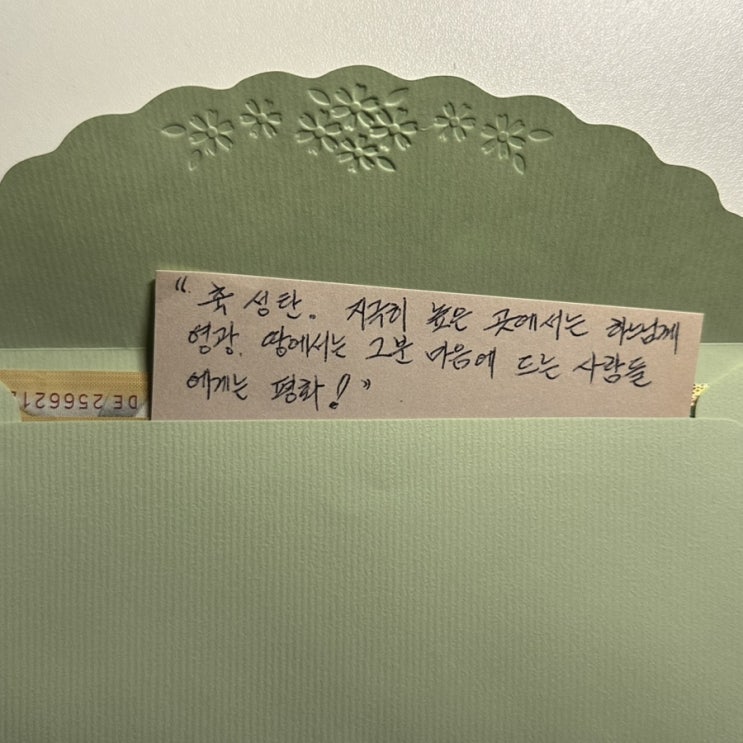 “축 성탄。 지극히 높은 곳에서는 하느님께
영광. 땅에서는 그분 마음에 드는 사람들
에게는 평화!”
DE 256621